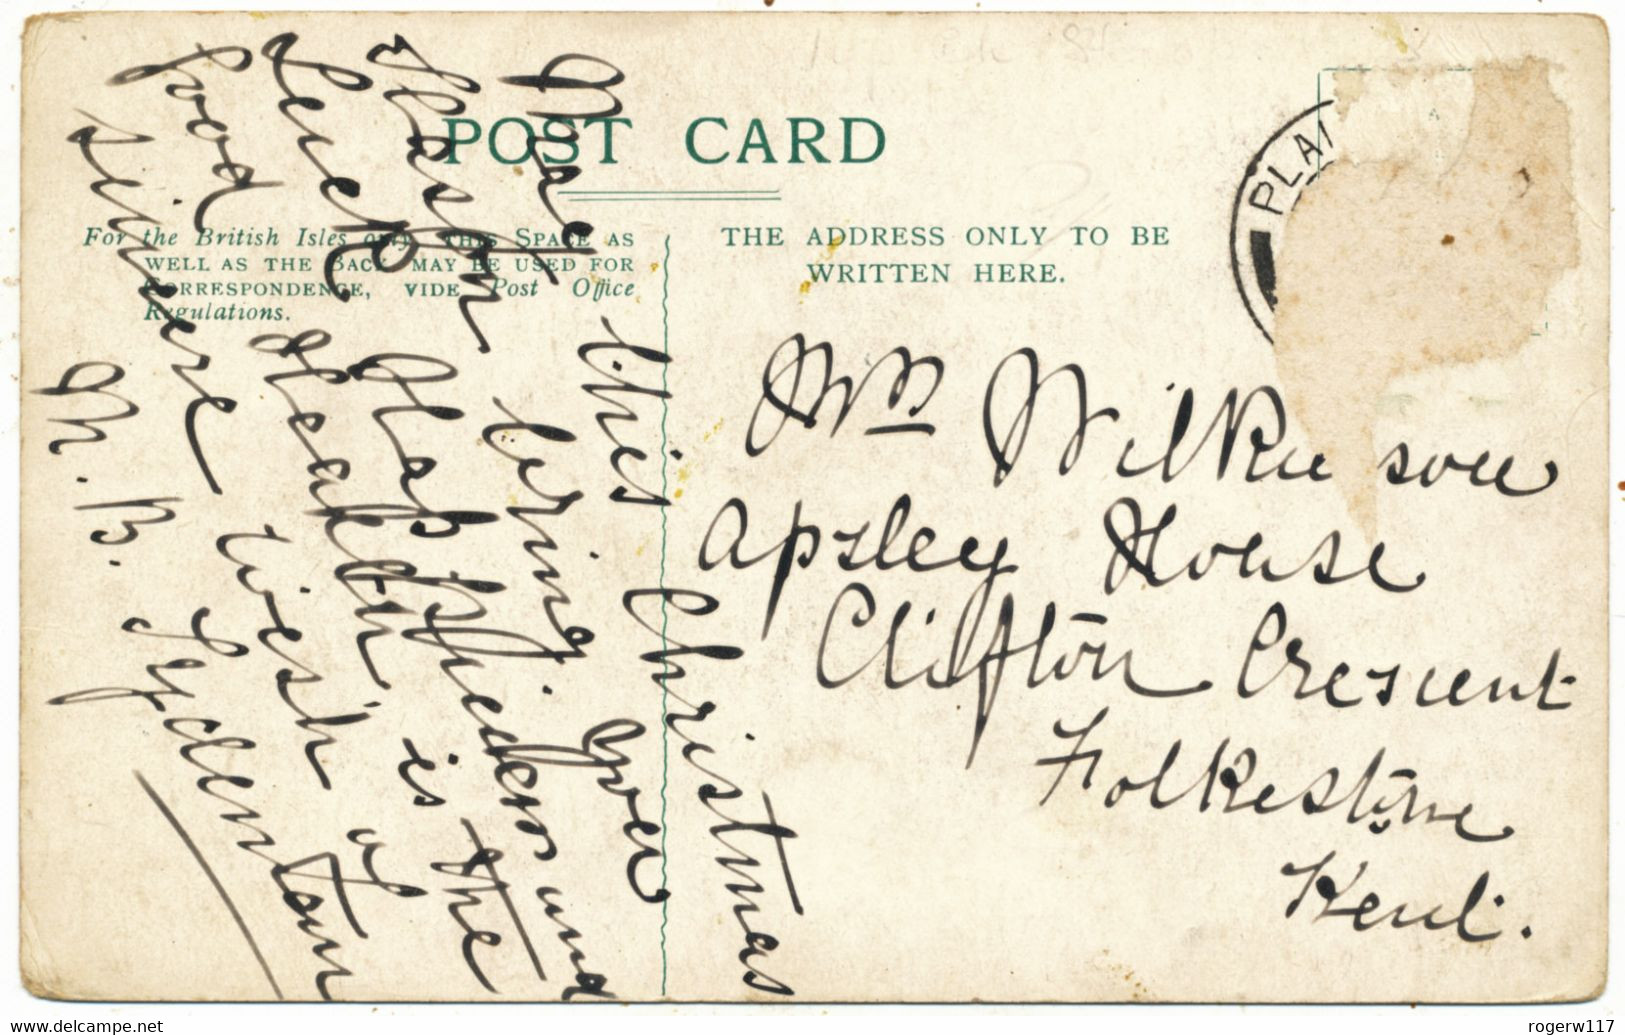 POST CARD
For the British Isles only, THIS SPACE AS
WELL AS THE BACK MAY BE USED FOR
CORRESPONDENCE, VIDE Post Office
Regulations.
THE ADDRESS ONLY TO BE
WRITTEN HERE.
PLA
May this Christmas
Season bring you
Luck Happiness and
good Health is the
sincere wish of
M. B. Sydenham
Mrs Wilkinson
Apsley House
Clifton Crescent
Folkestone
Kent.
www.delcampe.net
rogerw117